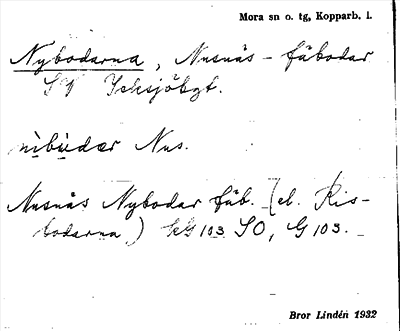 Mora sn o. tg, Kopparb. l.
Nybodarna, Nusnäs-fäbodar
SV Icksjöbgt.
nìbùdær Nus.
Nusnäs Nybodar fäb. (el. Ris-
bodarna) kG 103 SO, G 103.
Bror Lindén 1932